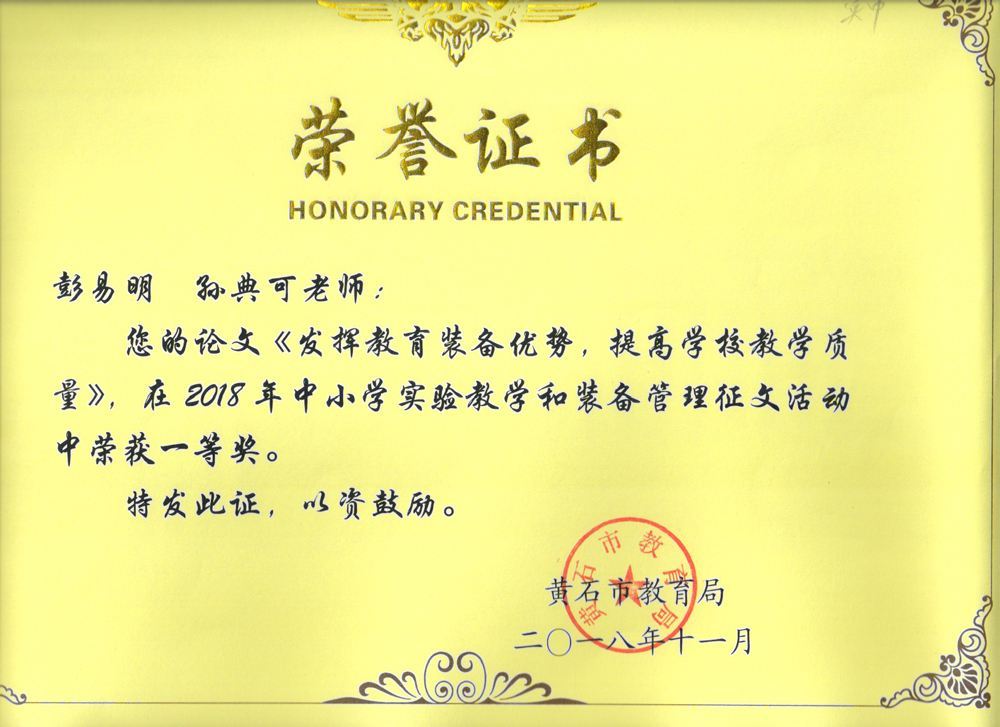 荣誉证书
HONORARY CREDENTIAL
彭易明 孙典可老师：
您的论文《发挥教育装备优势，提高学校教学质
量》，在2018年中小学实验教学和装备管理征文活动
中荣获一等奖。
特发此证，以资鼓励。
黄石市教育局
黄石市教育局
二〇一八年十一月